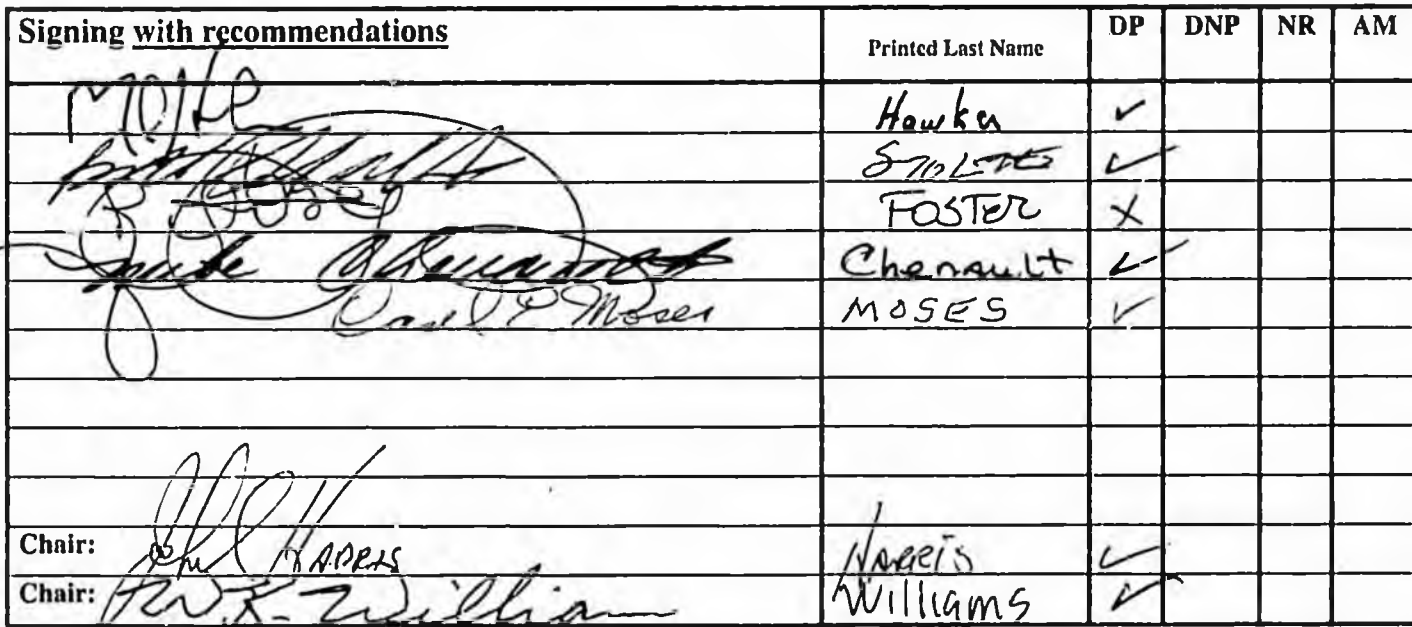 Signing with recommendations Printed Last Name DP DNP NR AM
Hawker ✓
✓
FOSTER X
Chenault ✓
Carl E. Moses MOSES ✓
Chair: HARRIS HARRIS ✓
Chair: W.K. William Williams ✓